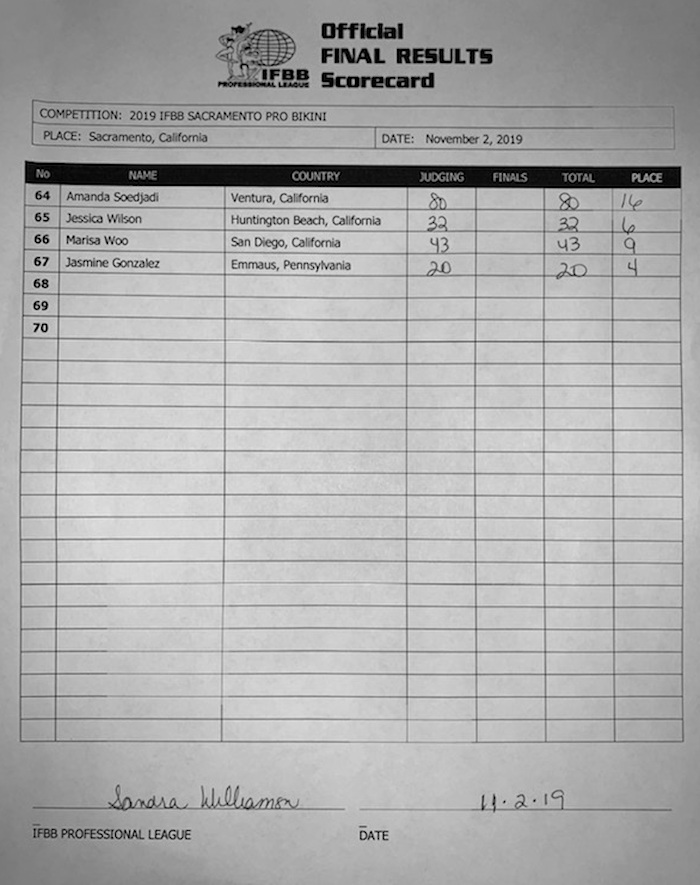 Official
FINAL RESULTS
IFBB
PROFESSIONAL LEAGUE
Scorecard
COMPETITION: 2019 IFBB SACRAMENTO PRO BIKINI
PLACE: Sacramento, California DATE: November 2, 2019
No NAME COUNTRY JUDGING FINALS TOTAL PLACE
64 Amanda Soedjadi Ventura, California 80 80 16
65 Jessica Wilson Huntington Beach, California 32 32 6
66 Marisa Woo San Diego, California 43 43 9
67 Jasmine Gonzalez Emmaus, Pennsylvania 20 20 4
68
69
70
Sandra Williamson 11.2.19
IFBB PROFESSIONAL LEAGUE DATE